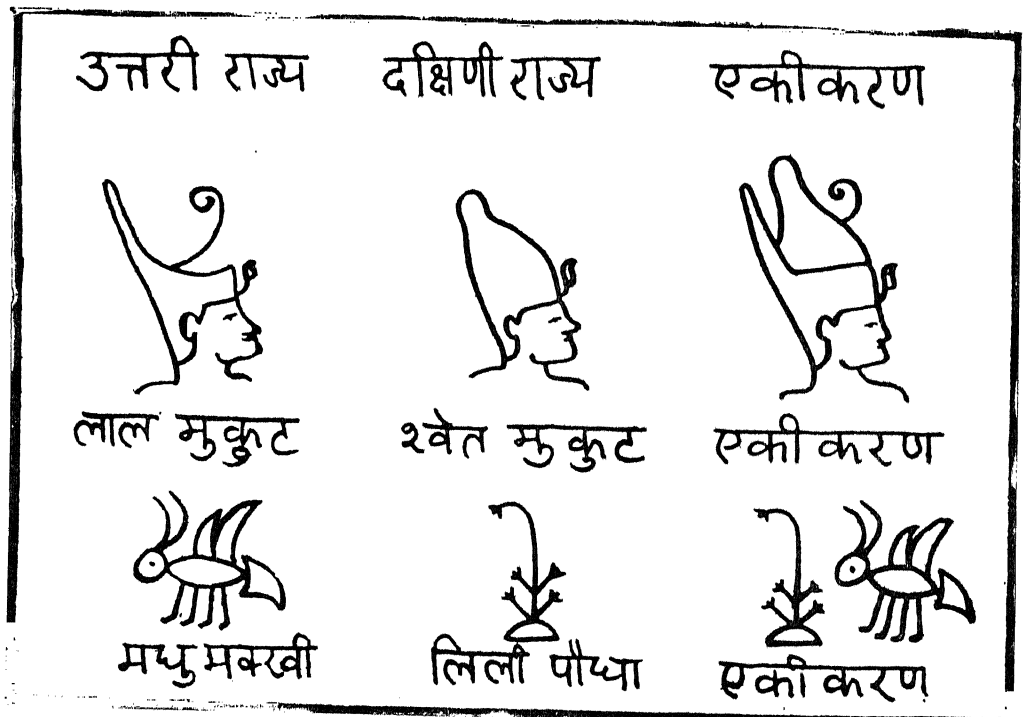 उत्तरी राज्य दक्षिणी राज्य एकीकरण
लाल मुकुट श्वेत मुकुट एकीकरण
मधुमक्खी लिली पौधा एकीकरण